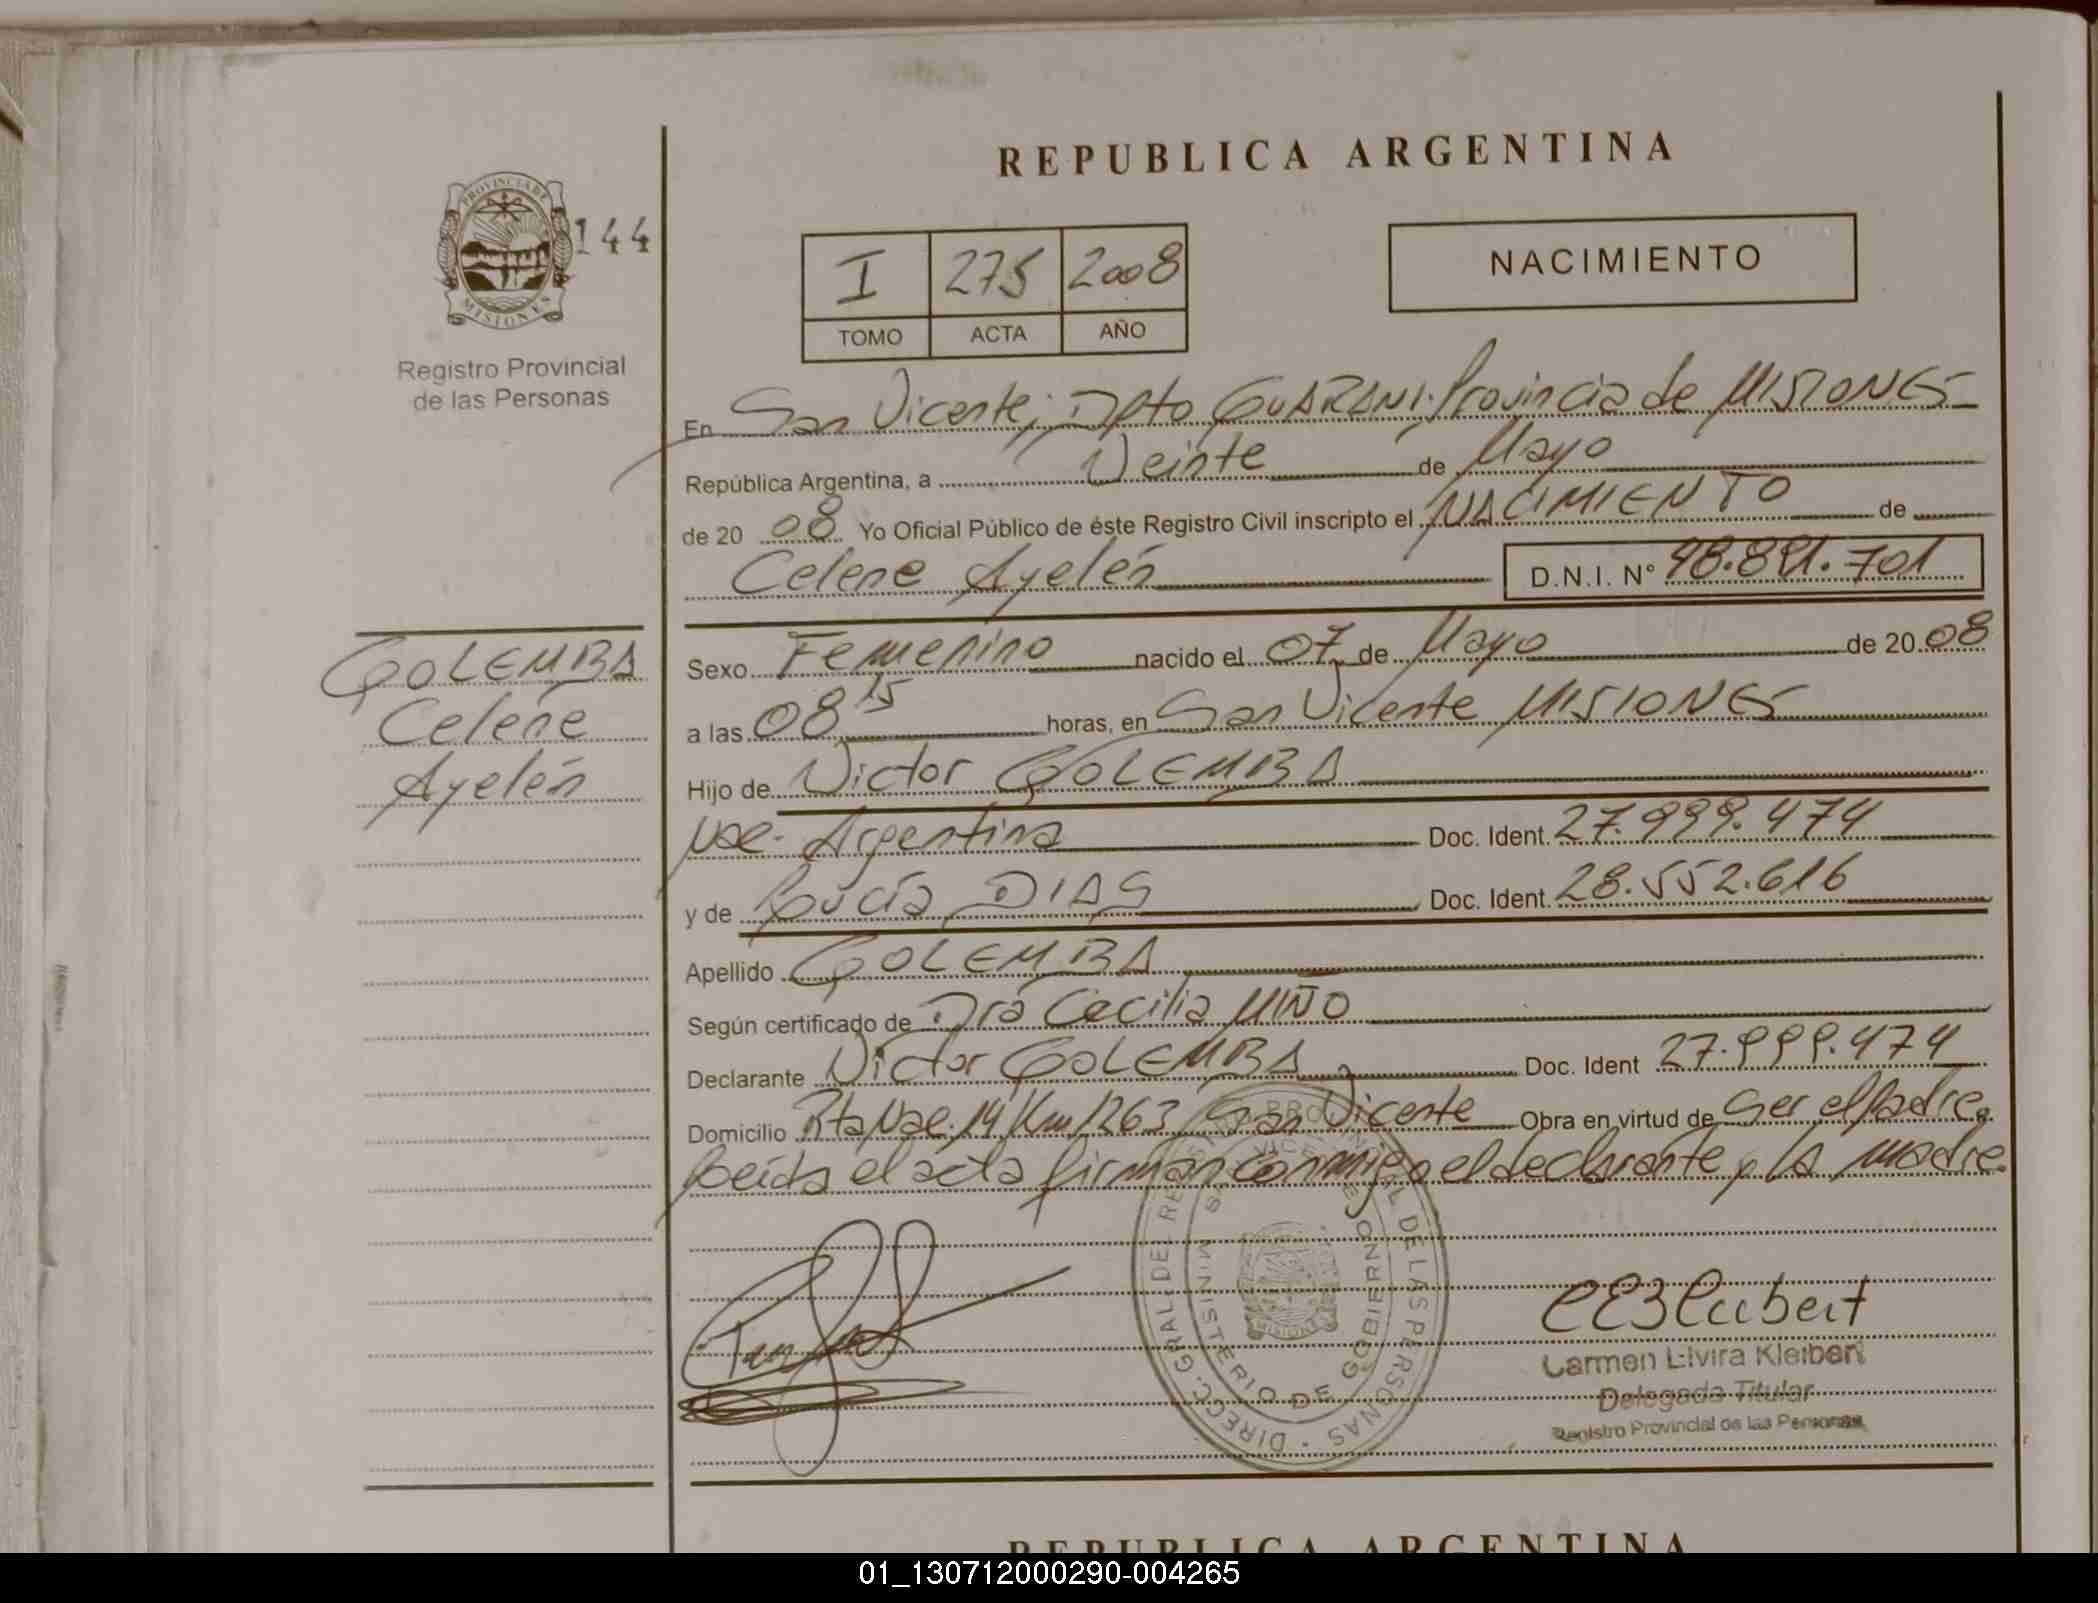 REPUBLICA ARGENTINA
PROVINCIA DE
MISIONES
144
Registro Provincial
de las Personas
I 275 2008
TOMO ACTA AÑO
NACIMIENTO
En San Vicente, Dpto GUARANI. Provincia de MISIONES
República Argentina, a Veinte de Mayo
de 20 08 Yo Oficial Público de éste Registro Civil inscripto el NACIMIENTO de
Celene Ayelén D.N.I. Nº 48.891.701
GOLEMBA
Celene
Ayelén
Sexo Femenino nacido el 07 de Mayo de 20 08
a las 08 15 horas, en San Vicente MISIONES
Hijo de Victor GOLEMBA
Nac. Argentina Doc. Ident. 27.999.474
y de Lucía DIAS Doc. Ident. 28.552.616
Apellido GOLEMBA
Según certificado de Dra Cecilia MIÑO
Declarante Victor GOLEMBA Doc. Ident 27.999.474
Domicilio Rta Nac. 14 Km 1263 San Vicente Obra en virtud de Ser el Padre.
Leída el acta firman conmigo el declarante y la madre.
DIRECC. GRAL. DEL REGISTRO PROVINCIAL DE LAS PERSONAS
MINISTERIO DE GOBIERNO
SAN VICENTE
MISIONES
Carmen Elvira Kleibert
Delegada Titular
Registro Provincial de las Personas
REPUBLICA ARGENTINA
01_130712000290-004265